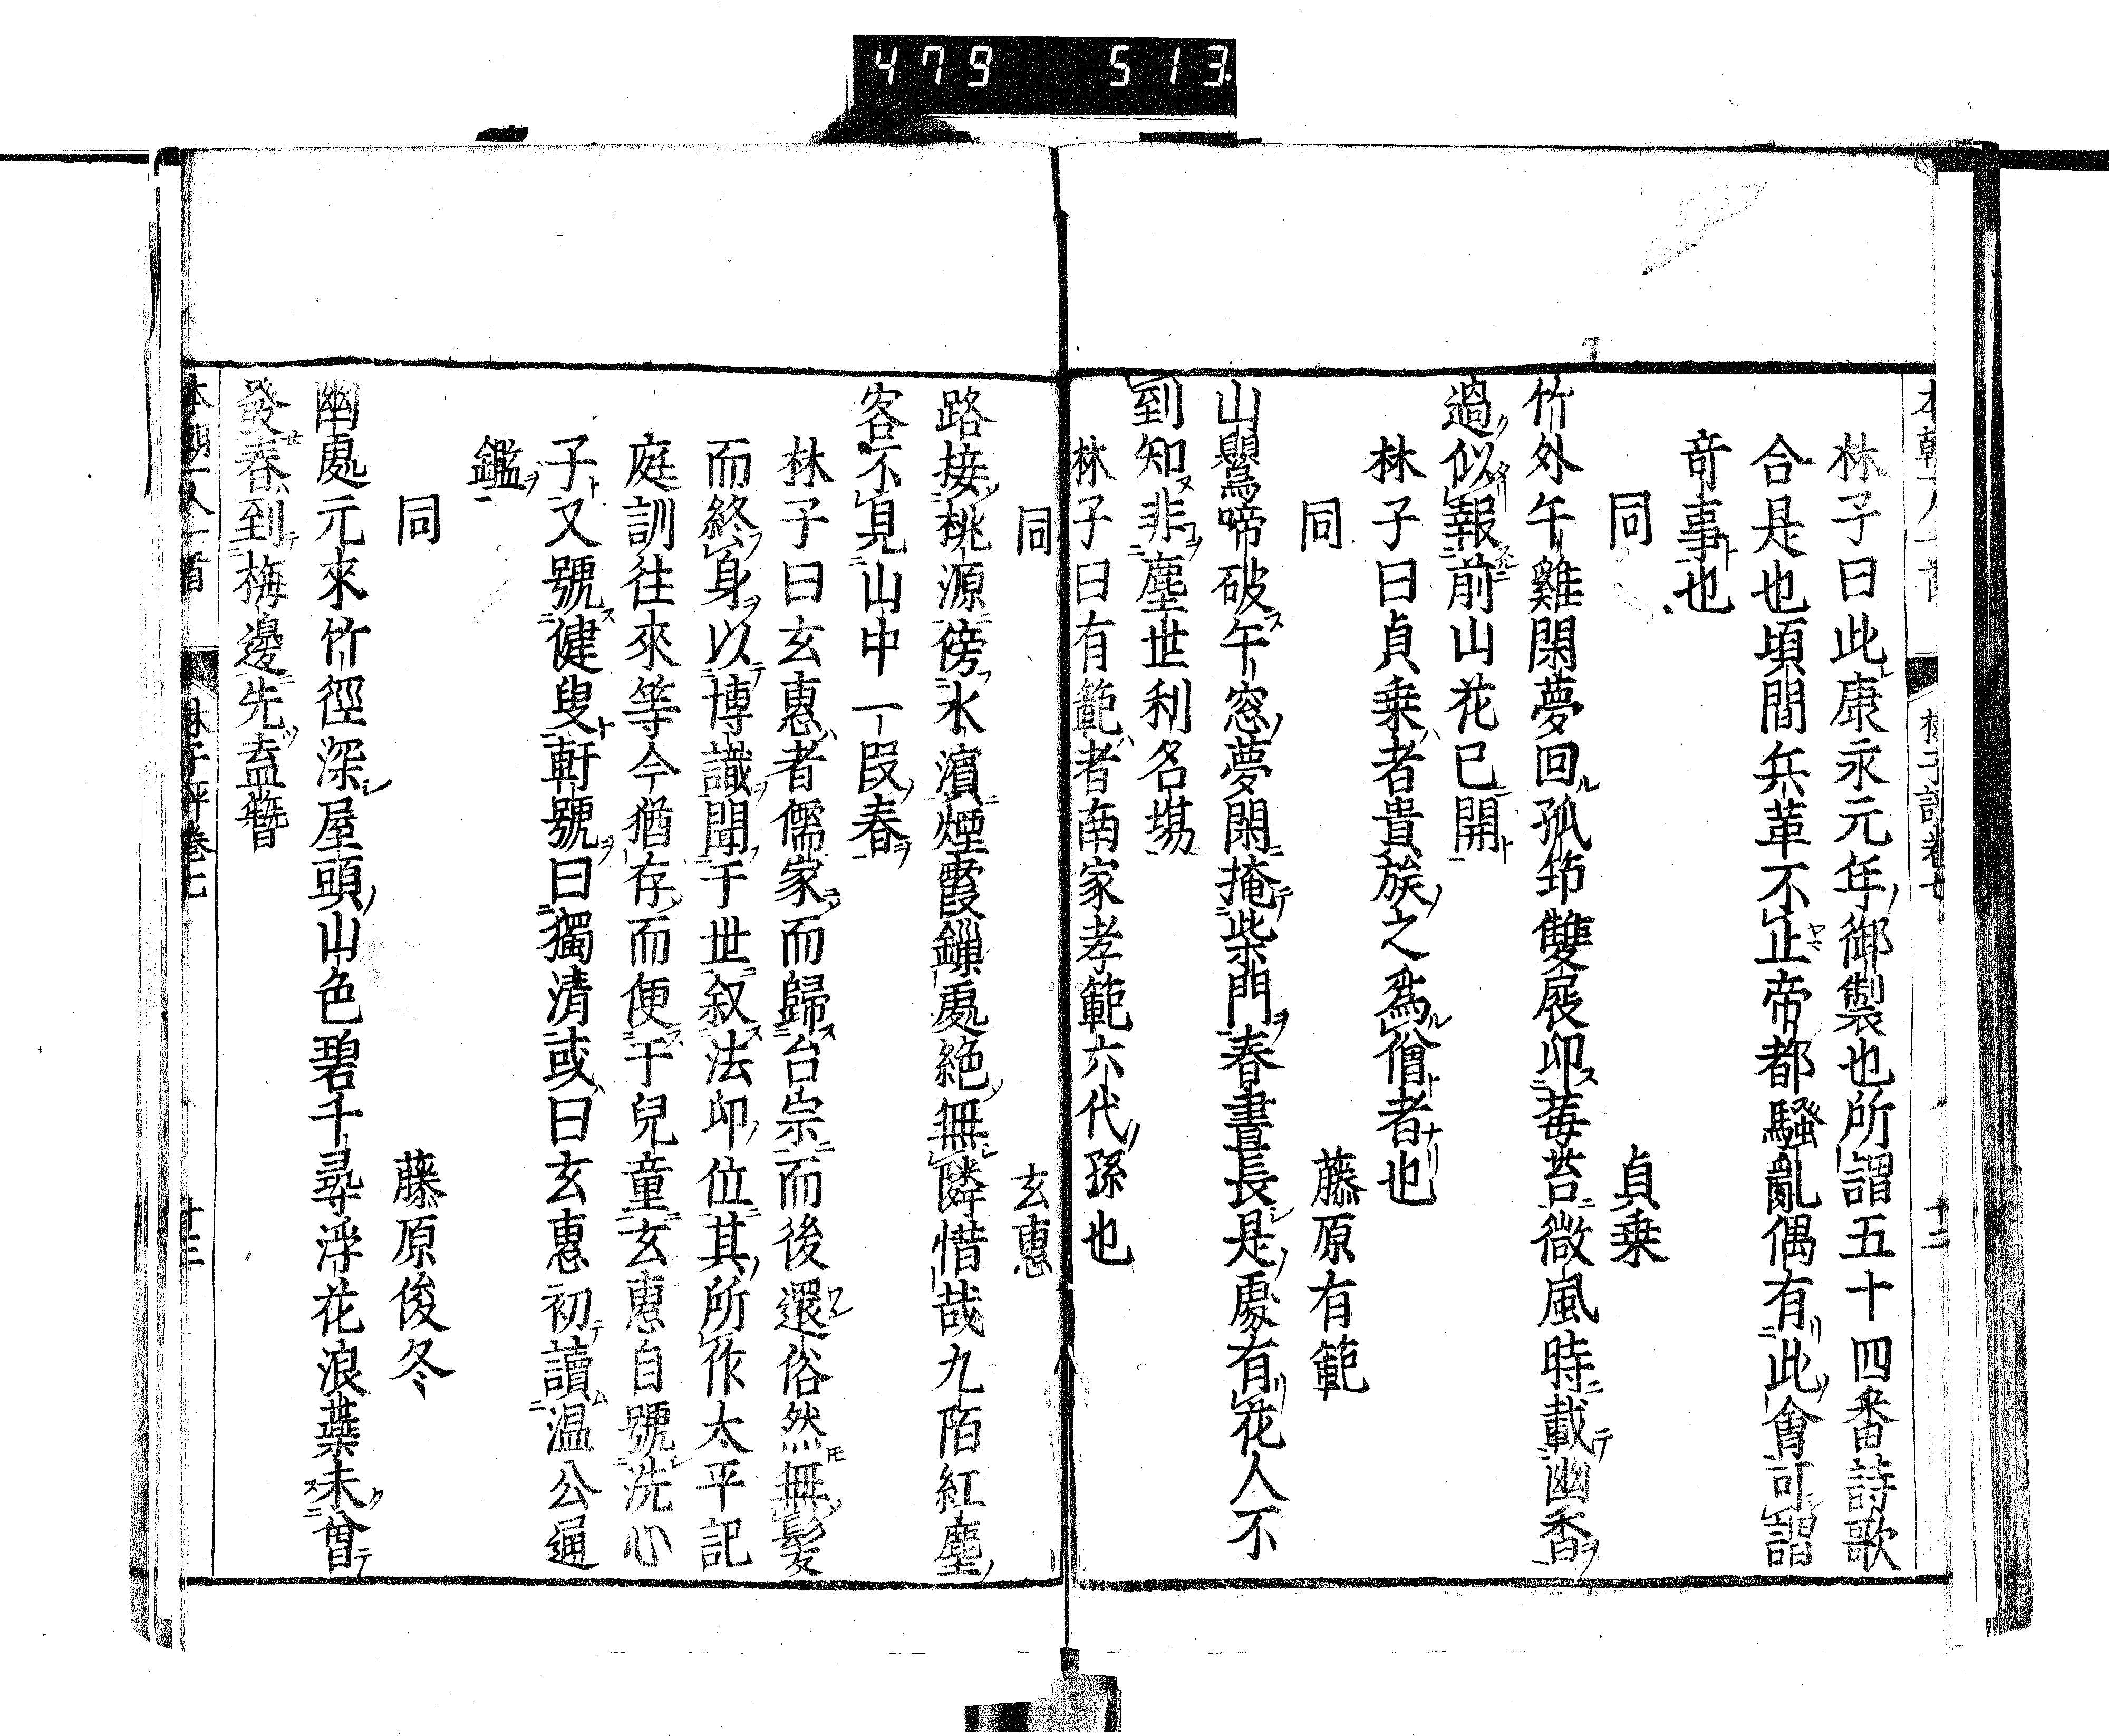 479 513
本朝一人一首 林子評卷七 十二
林子曰此康永元年御製也所謂五十四番詩歌
合是也頃間兵革不止帝都騷亂偶有此會可謂
奇事也
同 貞乗
竹外午雞閑夢回孤筇雙屐印莓苔微風時載幽香
過似報前山花已開
林子曰貞乗者貴族之爲僧者也
同 藤原有範
山鸎啼破午窓夢閑掩柴門春晝長是處有花人不
到知非塵世利名塲
林子曰有範者南家孝範六代孫也
同 玄惠
路接桃源傍水濱煙霞鏁處絶無隣惜哉九陌紅塵
客不見山中一段春
林子曰玄惠者儒家而歸台宗而後還俗然無髪
而終身以博識聞于世叙法印位其所作太平記
庭訓往來等今猶存而便于兒童玄惠自號洗心
子又號健叟軒號曰獨清或曰玄惠初讀温公通
鑑
同 藤原俊冬
幽處元來竹徑深屋頭山色碧千尋浮花浪蘂未曾
發春到梅邊先盍簪
本朝一人一首 林子評卷七 十三